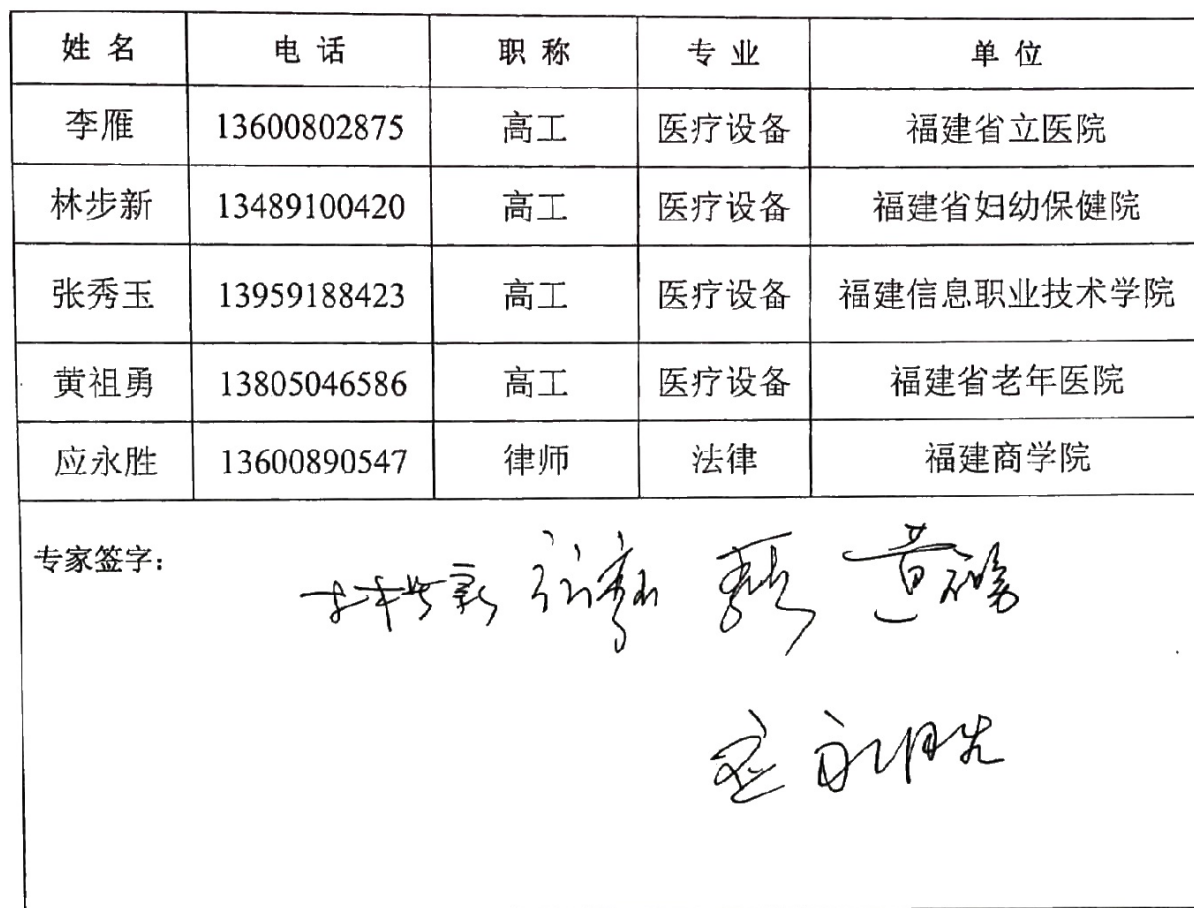 姓名 电话 职称 专业 单位
李雁 13600802875 高工 医疗设备 福建省立医院
林步新 13489100420 高工 医疗设备 福建省妇幼保健院
张秀玉 13959188423 高工 医疗设备 福建信息职业技术学院
黄祖勇 13805046586 高工 医疗设备 福建省老年医院
应永胜 13600890547 律师 法律 福建商学院
专家签字：
林步新 黄祖勇
应永胜